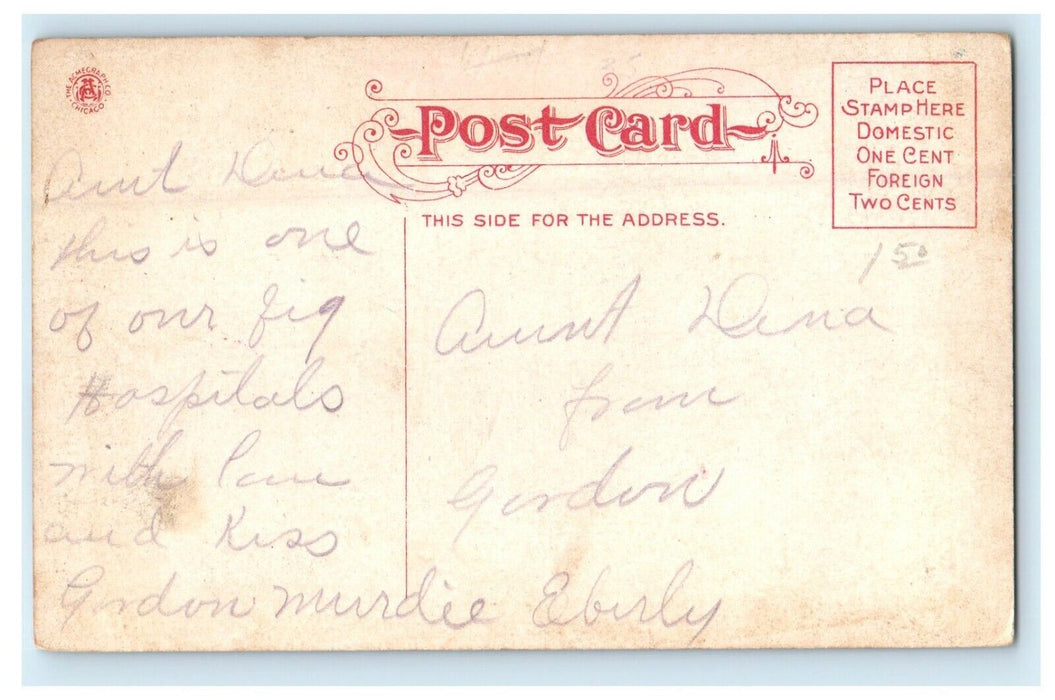 THE ACMEGRAPH CO. CHICAGO
Post Card
PLACE
STAMP HERE
DOMESTIC
ONE CENT
FOREIGN
TWO CENTS
THIS SIDE FOR THE ADDRESS.
150
Aunt Dena
this is one
of our big
Hospitals
with Love
and Kiss
Gordon Murdie Eberly
Aunt Dena
from
Gordon